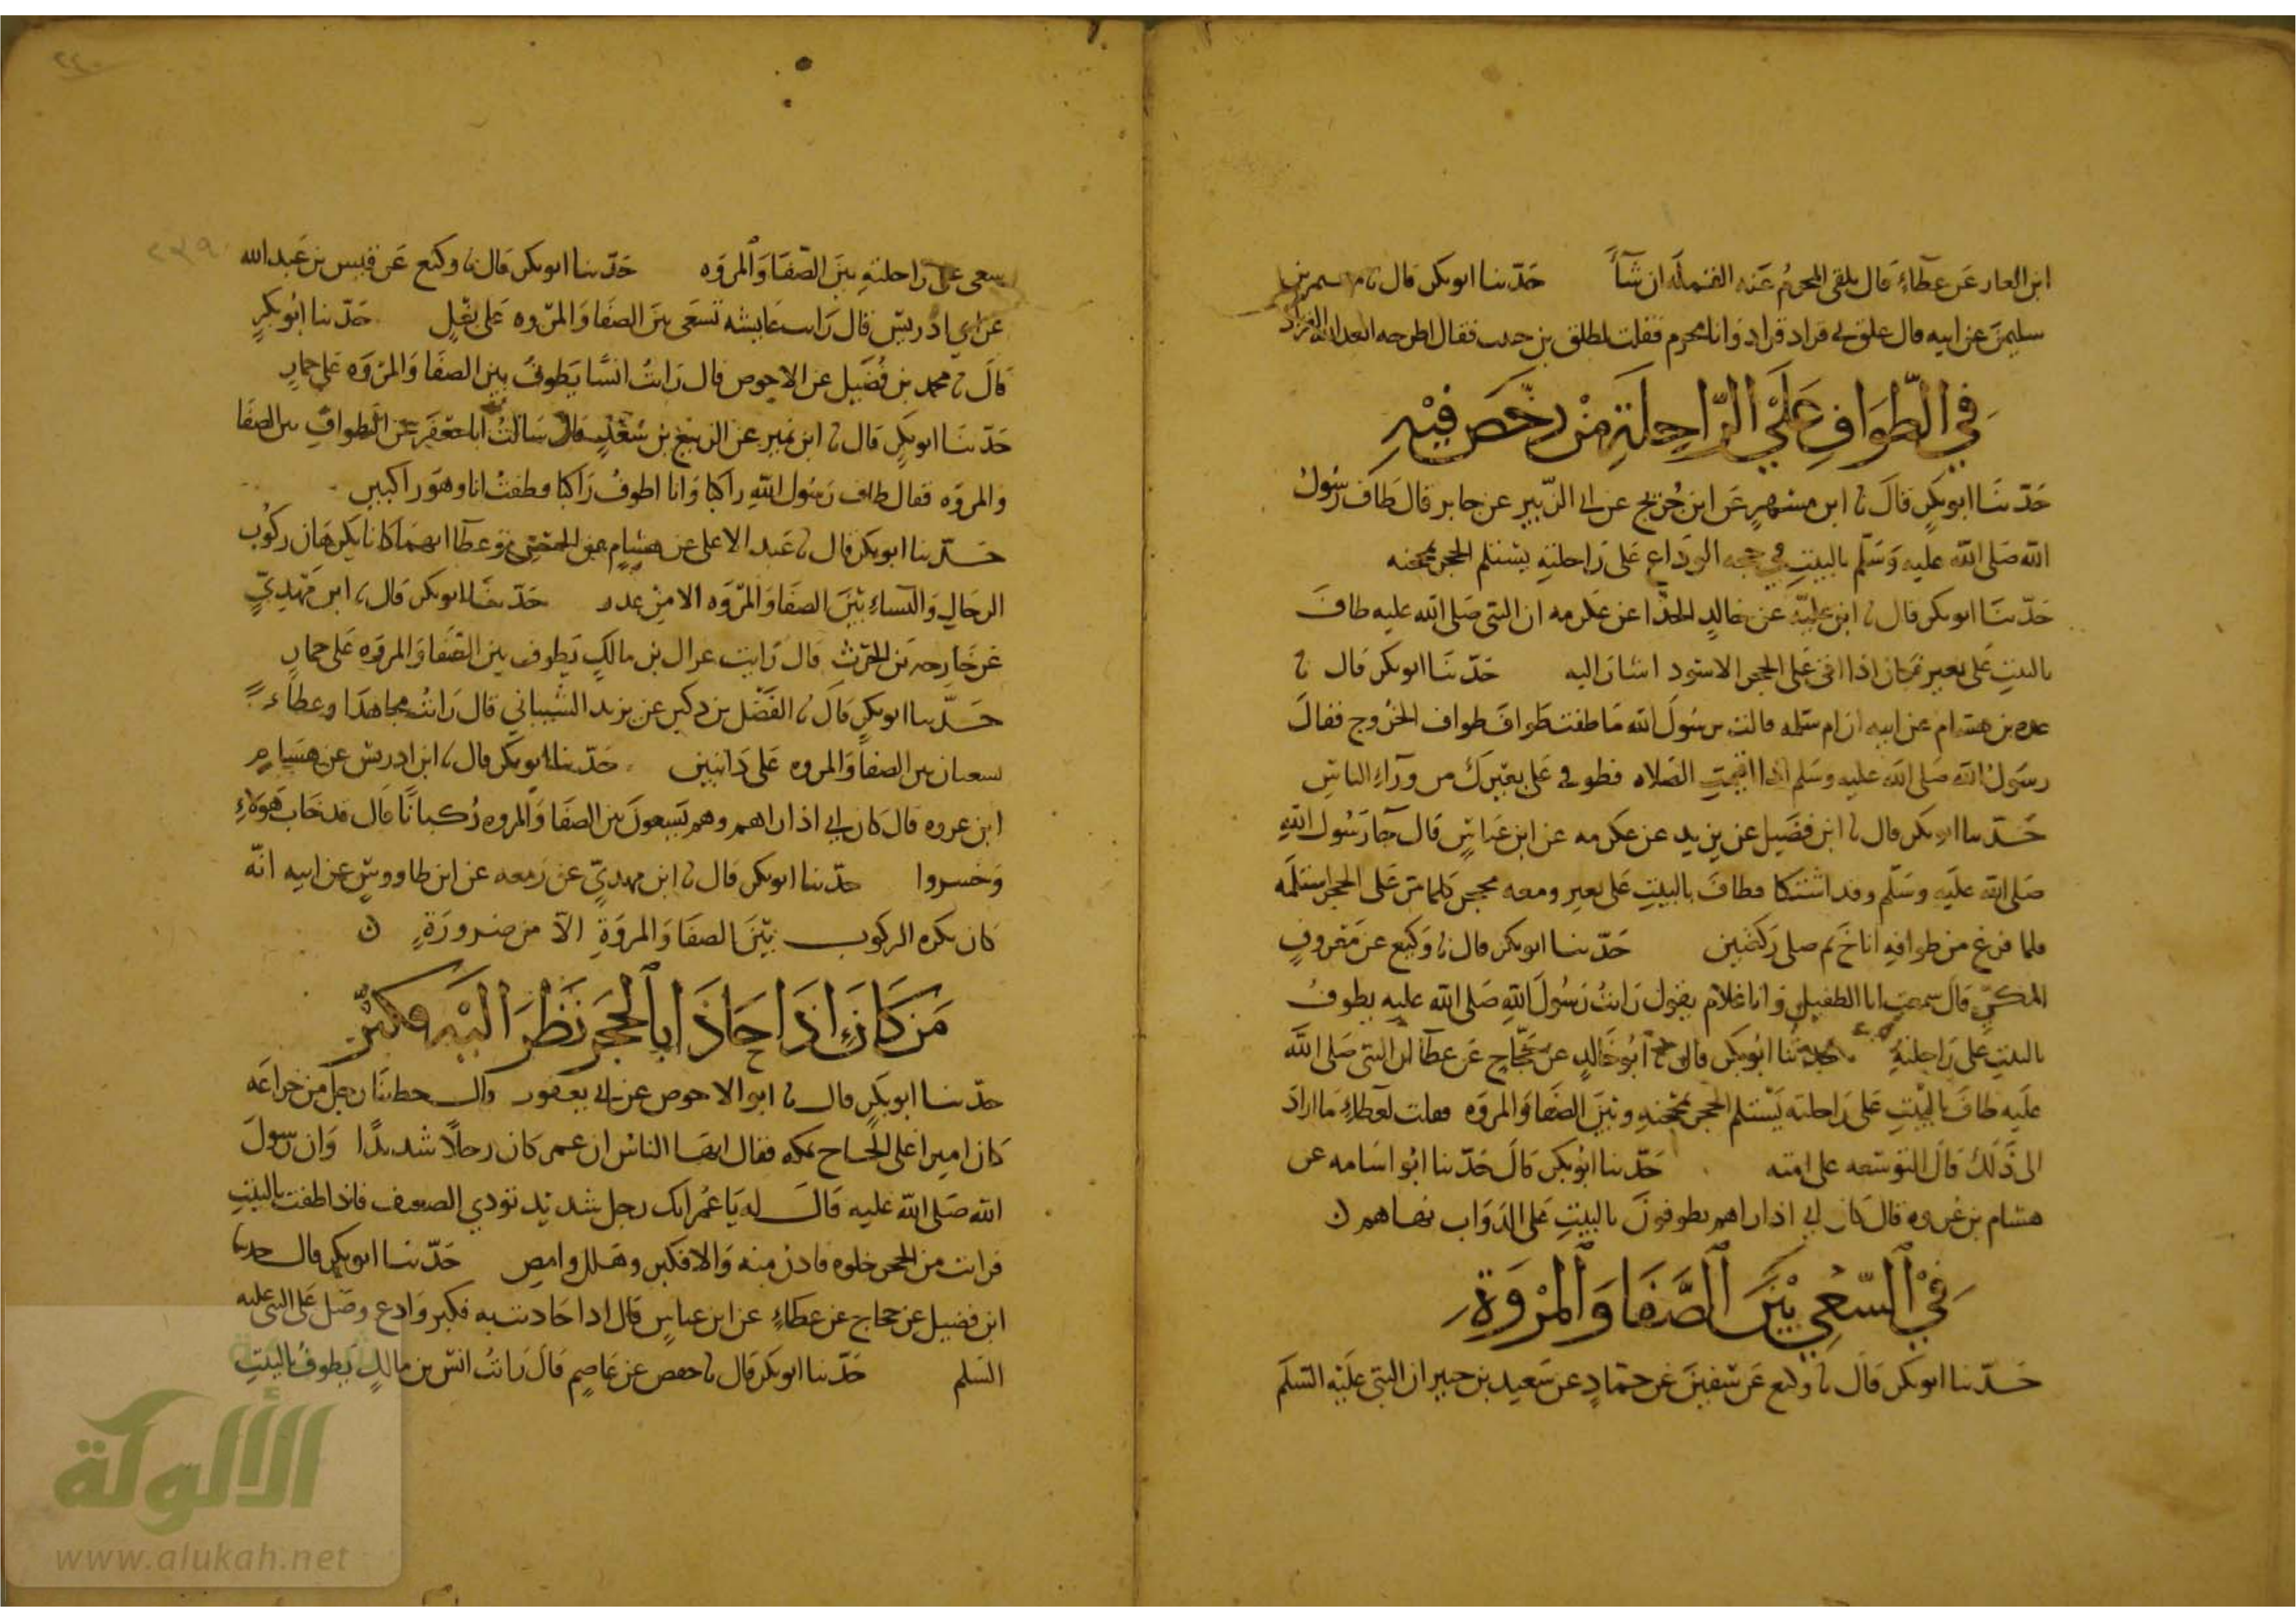 ابن العلا عن عطاء قال يلقي المحرم عنه القملة ان شاء حدثنا ابو بكر قال نا معتمر بن
سليمن عن ابيه قال علق بي قراد قراد وانا محرم فقلت لطلق بن حبيب فقال اطرحه ابعد الله القراد
في الطواف على الراحلة من رخص فيه
حدثنا ابو بكر قال نا ابن مسهر عن ابن جريج عن ابي الزبير عن جابر قال طاف رسول
الله صلى الله عليه وسلم بالبيت في حجه الوداع على راحلته يستلم الحجر بمحجنه
حدثنا ابو بكر قال نا ابن علية عن خالد الحذا عن عكرمه ان النبي صلى الله عليه طاف
بالبيت على بعير فكان اذا اتى على الحجر الاسود اشار اليه حدثنا ابو بكر قال نا
عبده بن هشام عن ابيه ان ام سلمه قالت يرسول الله ما طفت طواف طواف الخروج فقال
رسول الله صلى الله عليه وسلم اذا اقيمت الصلاه فطوفي على بعيرك من وراء الناس
حدثنا ابو بكر قال نا ابن فضيل عن يزيد عن عكرمه عن ابن عباس قال جا رسول الله
صلى الله عليه وسلم وقد اشتكا فطاف بالبيت على بعير ومعه محجن كلما مر على الحجر استلمه
فلما فرغ من طوافه اناخ ثم صلى ركعتين حدثنا ابو بكر قال نا وكيع عن معروف
المكي قال سمعت ابا الطفيل وانا غلام يقول رايت رسول الله صلى الله عليه يطوف
بالبيت على راحلته حدثنا ابو بكر قال نا ابو خالد عن حجاج عن عطا ان النبي صلى الله
عليه طاف بالبيت على راحلته يستلم الحجر بمحجنه وبين الصفا والمروه فقلت لعطاء ما اراد
الى ذلك قال التوسعه على امته حدثنا ابو بكر قال حدثنا ابو اسامه عن
هشام بن عروه قال كان ابي اذا راهم يطوفون بالبيت على الدواب نهاهم ن
في السعي بين الصفا والمروة
حدثنا ابو بكر قال نا وكيع عن سفين عن حماد عن سعيد بن جبير ان النبي عليه السلم
سعى على راحلته بين الصفا والمروه حدثنا ابو بكر قال نا وكيع عن قيس بن عبد الله
عن ابي ادريس قال رايت عايشه تسعى بين الصفا والمروه على بغل حدثنا ابو بكر
قال نا محمد بن فضيل عن الاحوص قال رايت انسا يطوف بين الصفا والمروه على حمار
حدثنا ابو بكر قال نا ابن نمير عن الربيع بن سعد قال سالت ابا جعفر عن الطواف بين الصفا
والمروه فقال طاف رسول الله راكبا وانا اطوف راكبا وطفت انا وهو راكبين
حدثنا ابو بكر قال نا عبد الاعلى عن هشام عن الحسن وعطا انهما كانا يكرهان ركوب
الرجال والنساء بين الصفا والمروه الا من عذر حدثنا ابو بكر قال نا ابن مهدي
عن خارجه بن الحرث قال رايت عراك بن مالك يطوف بين الصفا والمروه على حمار
حدثنا ابو بكر قال نا الفضل بن دكين عن يزيد الشيباني قال رايت مجاهدا وعطاء
يسعيان بين الصفا والمروه على دابتين حدثنا ابو بكر قال نا ابن ادريس عن هشام
ابن عروه قال كان ابي اذا راهم وهم يسعون بين الصفا والمروه ركبانا قال قد خاب هولاء
وخسروا حدثنا ابو بكر قال نا ابن مهدي عن زمعه عن ابن طاووس عن ابيه انه
كان يكره الركوب بين الصفا والمروة الا من ضرورة ن
من كان اذا حاذا بالحجر نظر اليه وكبر
حدثنا ابو بكر قال نا ابو الاحوص عن ابي يعفور قال خطبنا رجل من خزاعه
كان اميرا على الحاج بمكه فقال ايها الناس ان عمر كان رجلا شديدا وان رسول
الله صلى الله عليه قال له يا عمر انك رجل شديد تؤدي الضعيف فاذا طفت بالبيت
فرايت من الحجر خلوه فادن منه والا فكبر وهلل وامض حدثنا ابو بكر قال حدثنا
ابن فضيل عن حجاج عن عطاء عن ابن عباس قال اذا حاذيت به فكبر وادع وصل على النبي عليه
السلم حدثنا ابو بكر قال نا حفص عن عاصم قال رايت انس بن مالك يطوف بالبيت
الألوكة
www.alukah.net